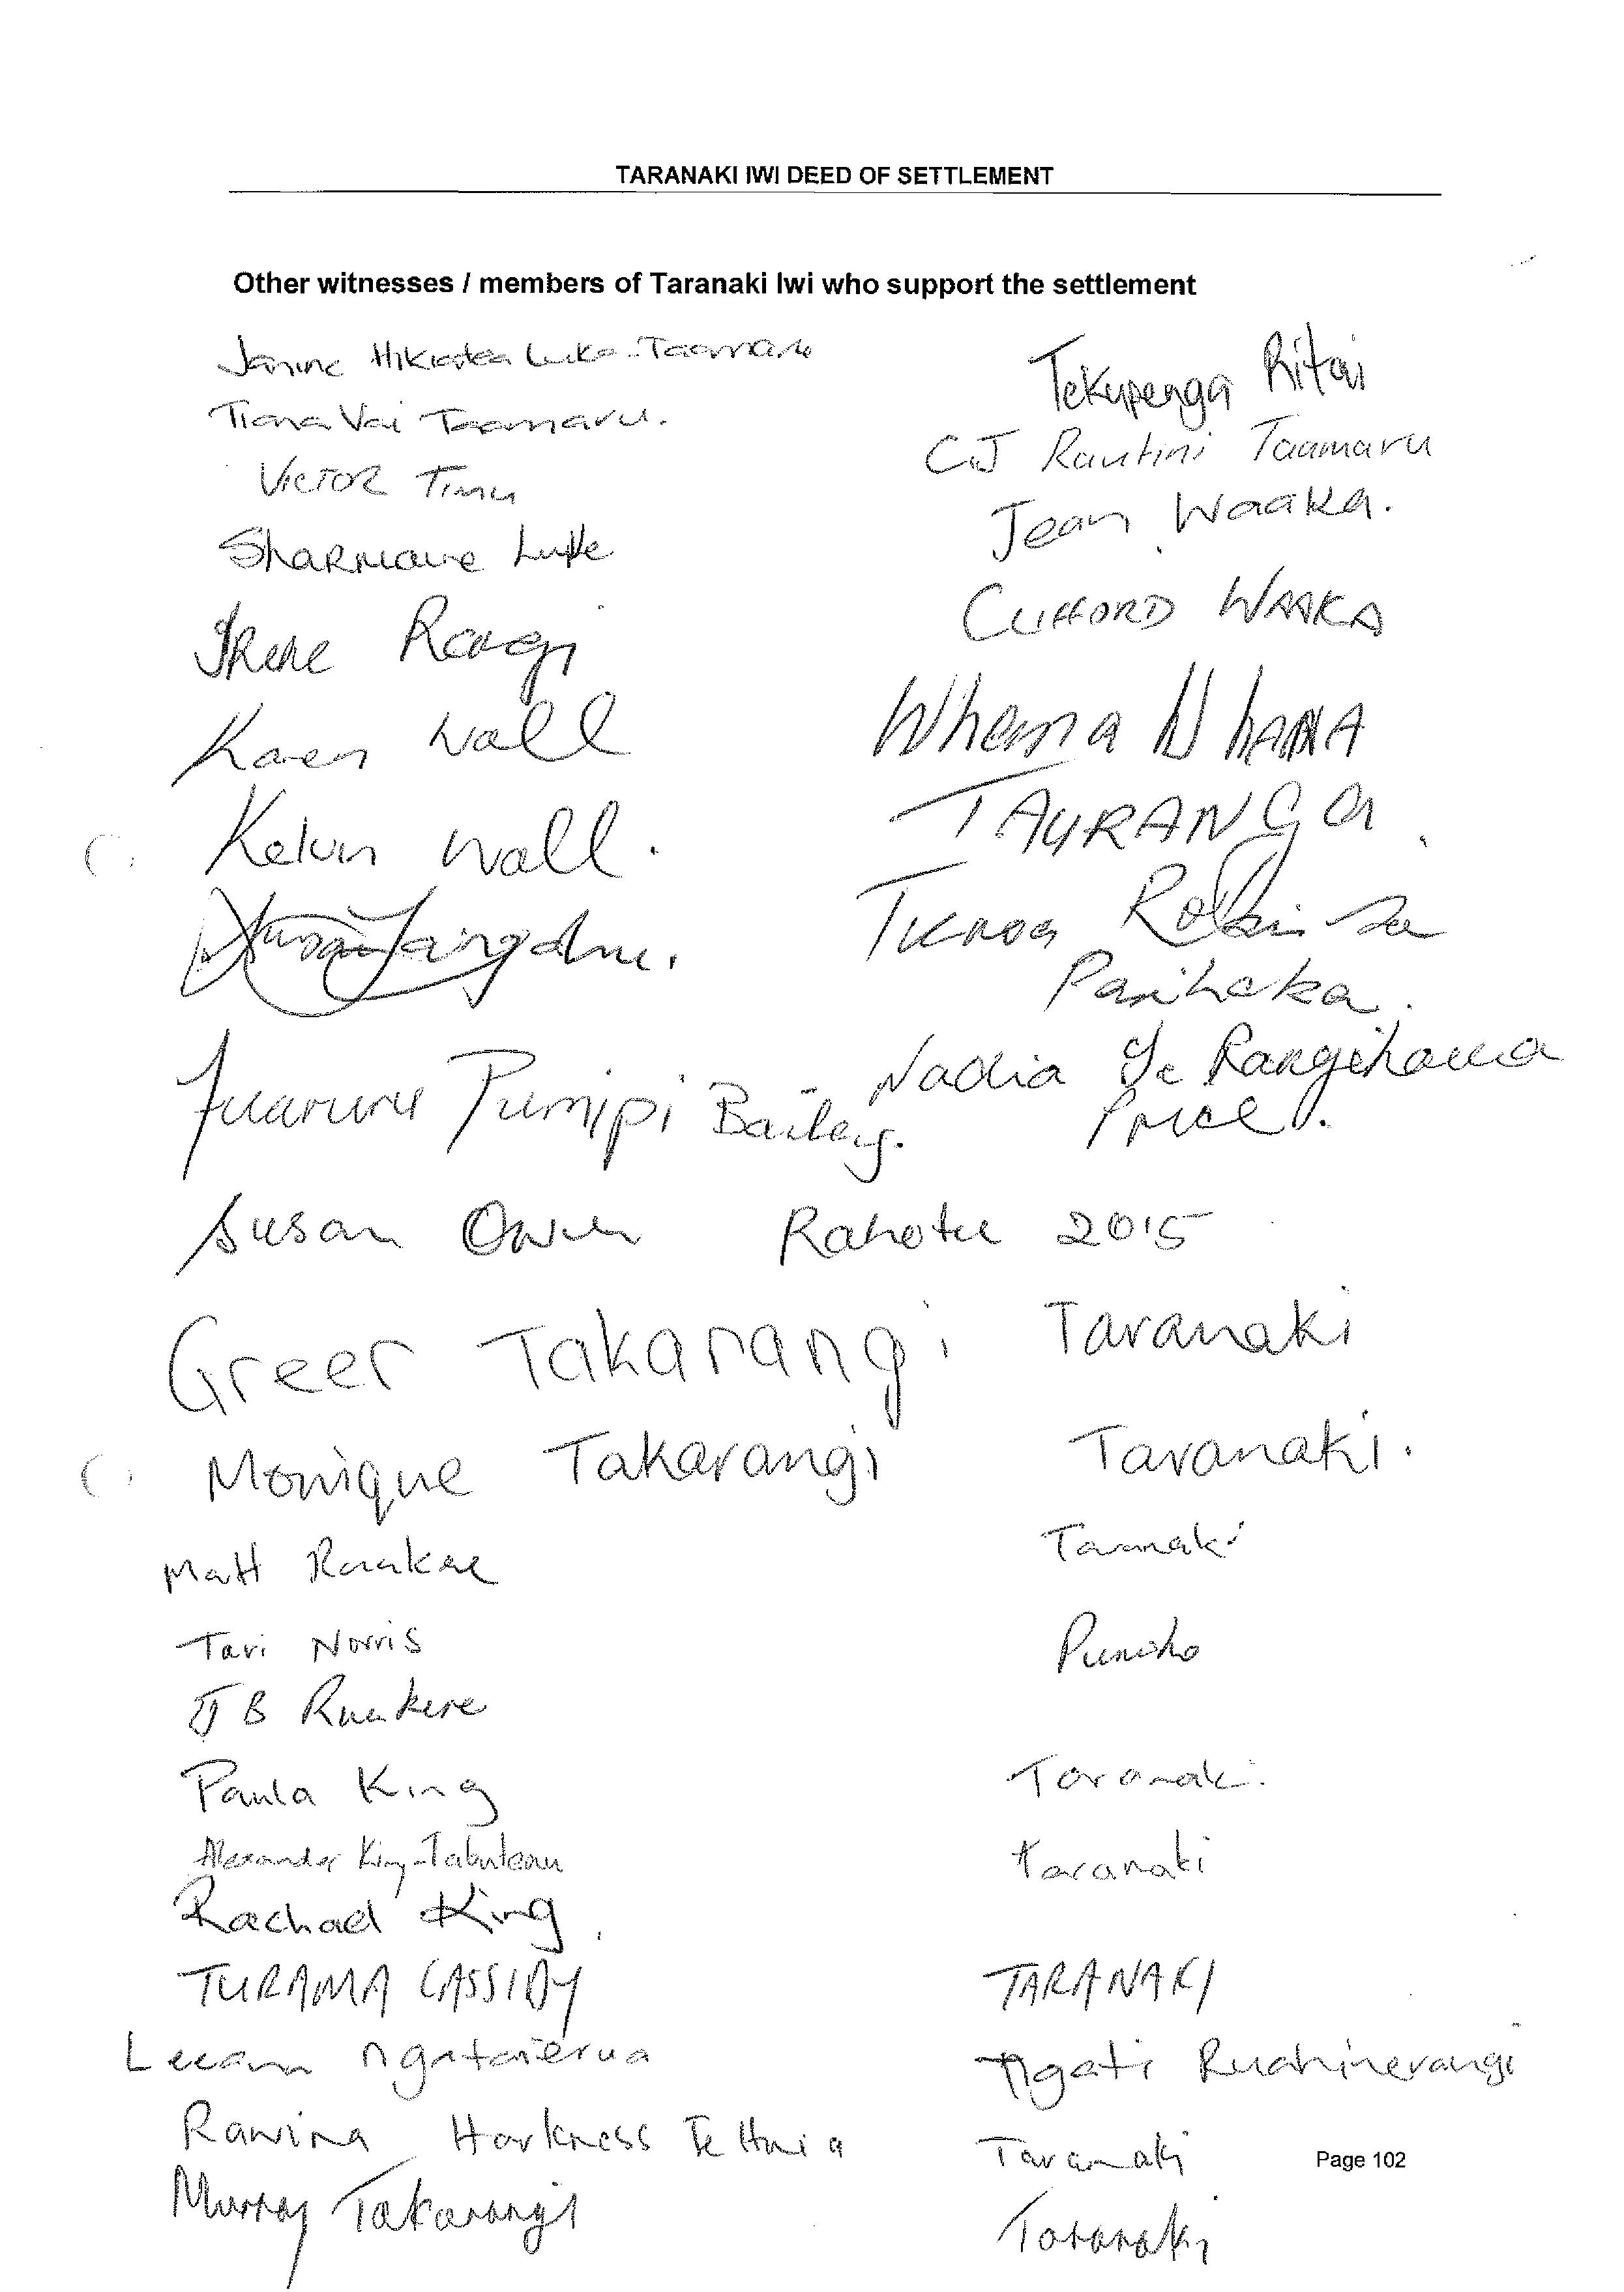 TARANAKI IWI DEED OF SETTLEMENT
Other witnesses / members of Taranaki Iwi who support the settlement
Janine Hikiatea Luke-Taamaru
Tekupenga Ritai
Tiana Vai Taamaru.
CJ Rautini Taamaru
VICTOR Timu
Jean Waaka.
Sharmaine Luke
CLIFFORD WAAKA
Irene Rangi
Karen Wall
Whema N
TAURANGA.
Kelvin Wall.
Robinson
Parihaka.
Pumipi Bailey.
Nadia Te Rangihaua
Price.
Susan Owen Rahotu 2015
Greer Takarangi Taranaki
Monique Takarangi Taranaki.
Matt Ruakere Taranaki
Tari Norris Puniho
JB Ruakere
Paula King Taranaki.
Alexander King-Tabuteau Taranaki
Rachael King
TURAMA CASSIDY TARANAKI
Leeann Ngataierua Ngati Ruahinerangi
Rawina Harkness Te Huia Taranaki
Page 102
Murray Takarangi Taranaki